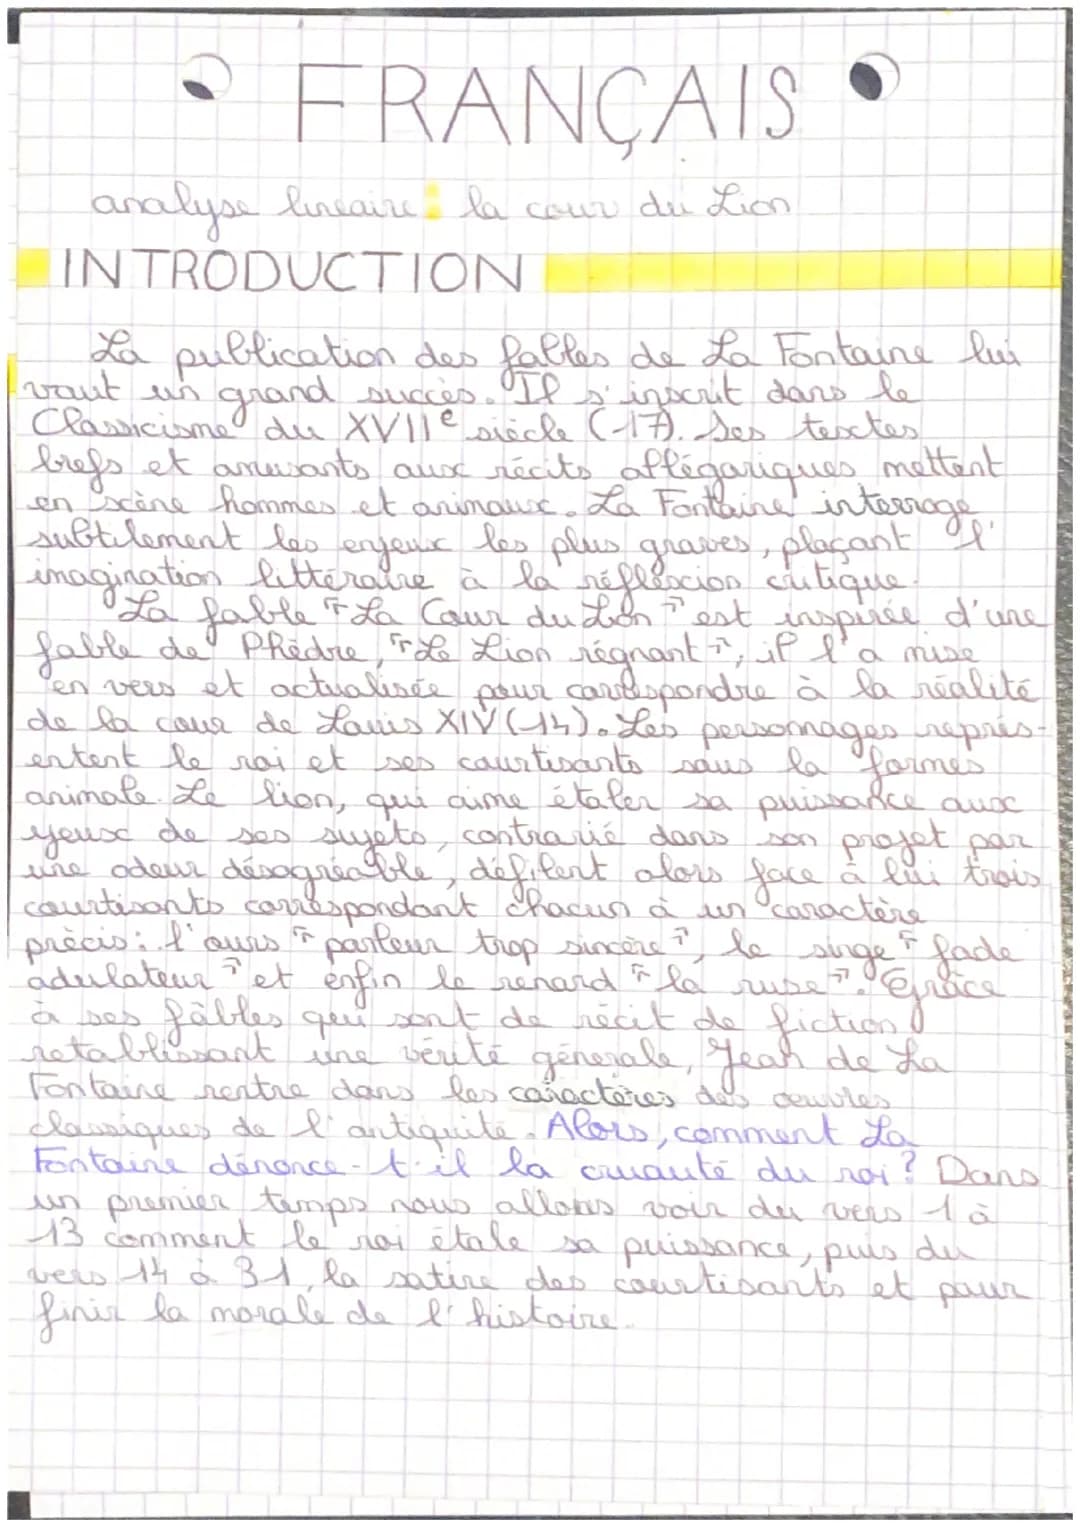 FRANÇAIS
analyse linéaire : la cour du Lion
INTRODUCTION
La publication des fables de La Fontaine lui
vaut un grand succès. Il s'inscrit dans le
Classicisme du XVIIe siècle (17). Ses textes
brefs et amusants aux récits allégoriques mettent
en scène hommes et animaux. La Fontaine interroge
subtilement les enjeux les plus graves, plaçant l'
imagination littéraire à la réflexion critique.
La fable "La Cour du Lion" est inspirée d'une
fable de Phèdre, "Le Lion régnant", il l'a mise
en vers et actualisée pour correspondre à la réalité
de la cour de Louis XIV (14). Les personnages représ-
entent le roi et ses courtisants sous la formes
animale. Le lion, qui aime étaler sa puissance aux
yeux de ses sujets, contrarié dans son projet par
une odeur désagréable, défilent alors face à lui trois
courtisants correspondant chacun à un caractère
précis : l'ours "parleur trop sincère", le singe "fade
adulateur" et enfin le renard "la ruse". Grâce
à ses fâbles qui sont de récit de fiction
retablissant une vérité générale, Jean de La
Fontaine rentre dans les caractères des œuvres
classiques de l'antiquité. Alors, comment La
Fontaine dénonce-t-il la cruauté du roi ? Dans
un premier temps nous allons voir du vers 1 à
13 comment le roi étale sa puissance, puis du
vers 14 à 31, la satire des courtisants et pour
finir la morale de l'histoire.